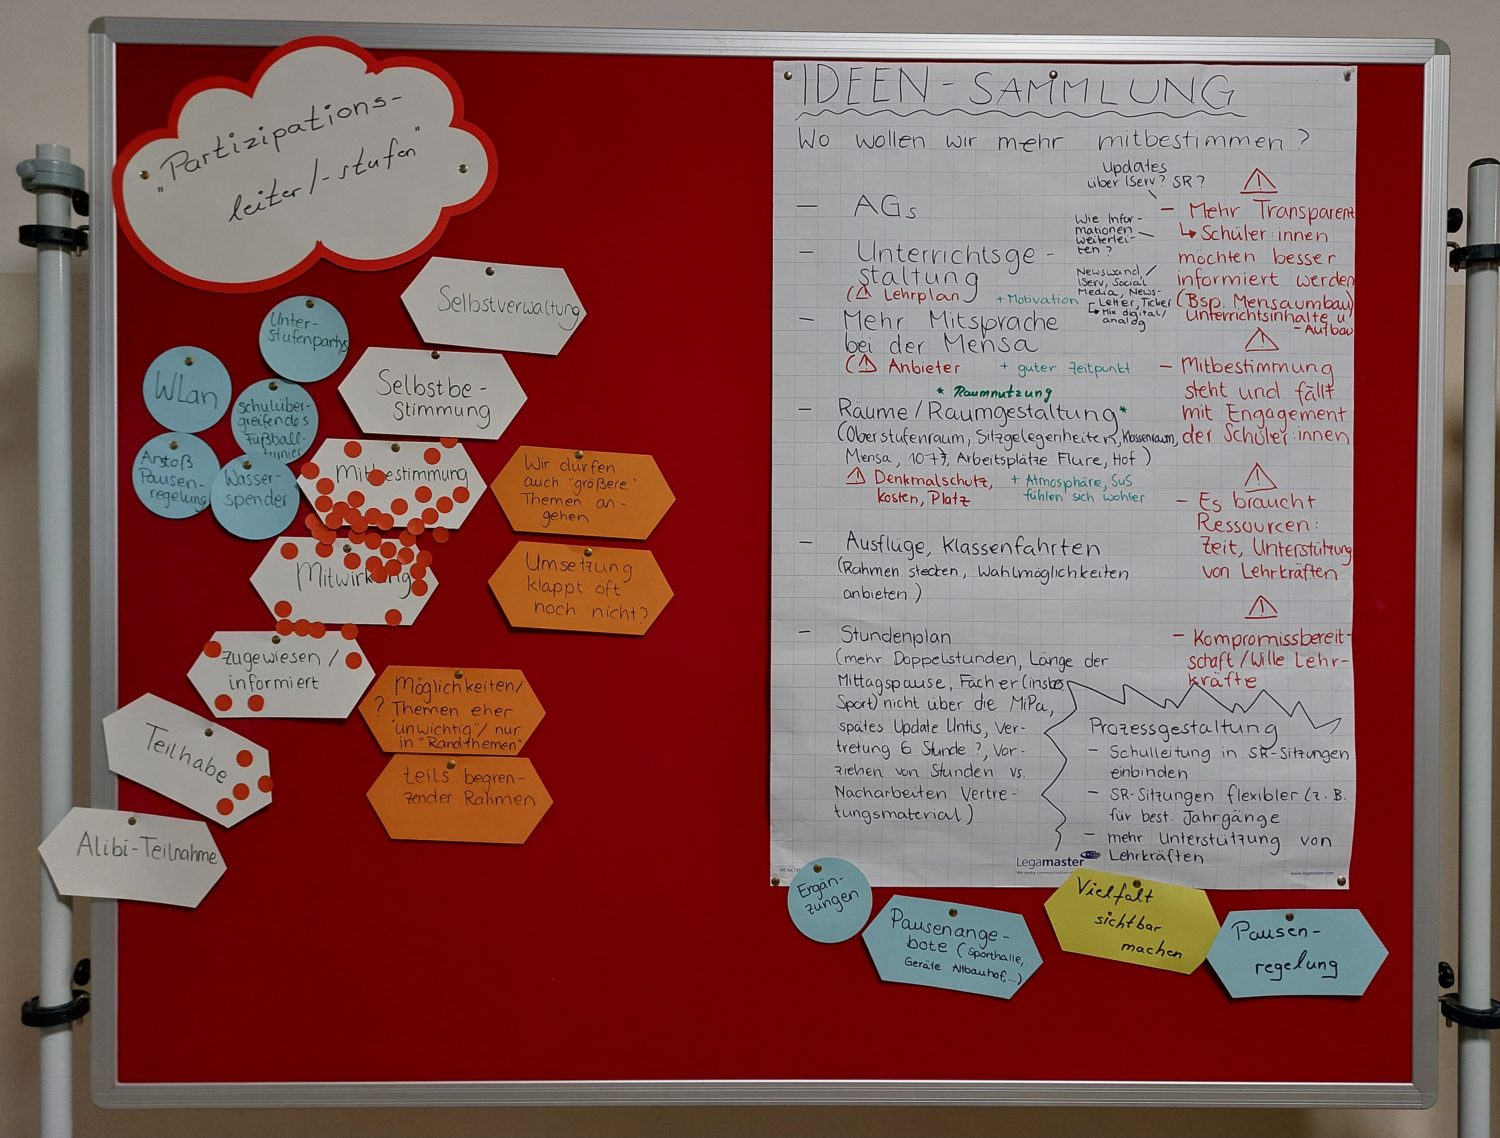 "Partizipations-
leiter/-stufen"
Selbstverwaltung
Unter-
stufenpartys
WLan
schulüber-
greifendes
Fußball-
turnier
Anstoß
Pausen-
regelung
Wasser-
spender
Selbstbe-
stimmung
Mitbestimmung
Wir dürfen
auch "größere"
Themen an-
gehen
Mitwirkung
Umsetzung
klappt oft
noch nicht?
zugewiesen /
informiert
Möglichkeiten/
? Themen eher
"unwichtig"/ nur
in "Randthemen"
Teilhabe
teils begren-
zender Rahmen
Alibi-Teilnahme
IDEEN-SAMMLUNG
Wo wollen wir mehr mitbestimmen?
- AGs
- Unterrichtsge-
staltung
(⚠ Lehrplan + Motivation
- Mehr Mitsprache
bei der Mensa
(⚠ Anbieter + guter Zeitpunkt
* Raumnutzung
- Räume/Raumgestaltung*
(Oberstufenraum, Sitzgelegenheiten, Klassenraum,
Mensa, 1077, Arbeitsplätze Flure, Hof)
⚠ Denkmalschutz, + Atmosphäre, SuS
Kosten, Platz fühlen sich wohler
- Ausflüge, Klassenfahrten
(Rahmen stecken, Wahlmöglichkeiten
anbieten)
- Stundenplan
(mehr Doppelstunden, Länge der
Mittagspause, Fächer (insbes.
Sport) nicht über die MiPa,
spätes Update Untis, Ver-
tretung 6 Stunde?, Vor-
ziehen von Stunden vs.
Nacharbeiten Vertre-
tungsmaterial)
Updates
über IServ? SR?
Wie Infor-
mationen
weiterlei-
ten?
Newswand/
IServ, Social
Media, News-
Letter, Ticker
↳ Mix digital/
analog
⚠
- Mehr Transparenz
↳ Schüler:innen
möchten besser
informiert werden
(Bsp. Mensaumbau)
Unterrichtsinhalte u.
-Aufbau
⚠
- Mitbestimmung
steht und fällt
mit Engagement
der Schüler:innen
⚠
- Es braucht
Ressourcen:
Zeit, Unterstützung
von Lehrkräften
⚠
- Kompromissbereit-
schaft/Wille Lehr-
kräfte
Prozessgestaltung
- Schulleitung in SR-Sitzungen
einbinden
- SR-Sitzungen flexibler (z.B.
für best. Jahrgänge
- mehr Unterstützung von
Lehrkräften
Legamaster
www.legamaster.com
Ergän-
zungen
Pausenange-
bote (Sporthalle,
Geräte Altbauhof,...)
Vielfalt
sichtbar
machen
Pausen-
regelung